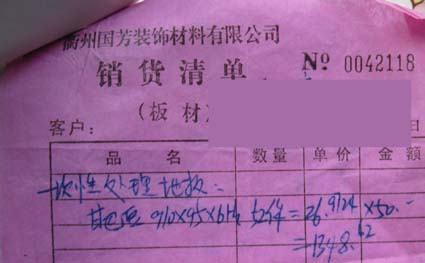 衢州国芳装饰材料有限公司
销货清单
№ 0042118
(板材)
客户: 日
品 名 数量 单价 金额
一次性处理地板:
910×95×614 = 26.9724 ×50.-
=1348.62